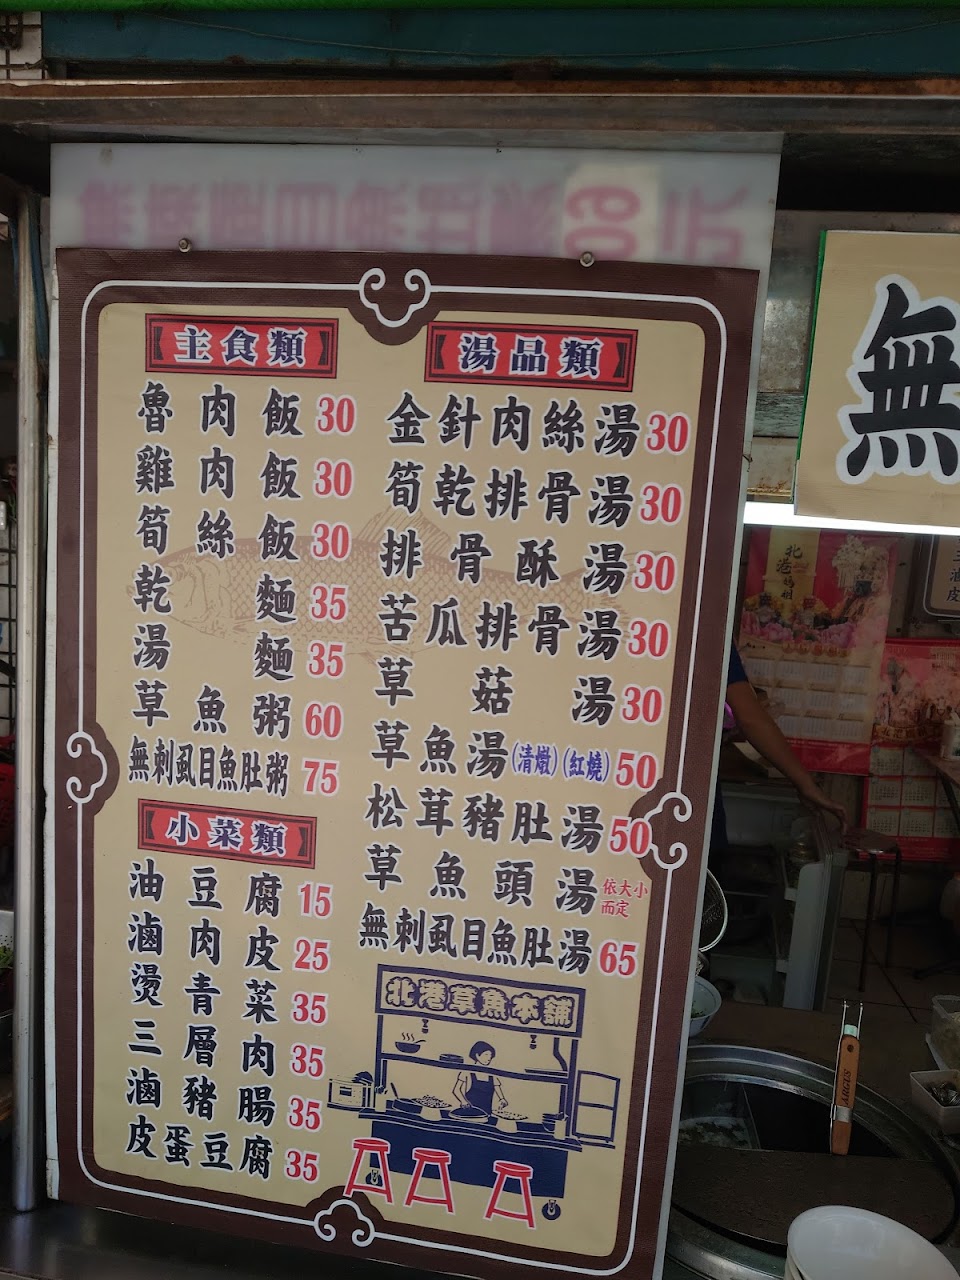 主食類
魯肉飯 30
雞肉飯 30
筍絲飯 30
乾麵 35
湯麵 35
草魚粥 60
無刺虱目魚肚粥 75
小菜類
油豆腐 15
滷肉皮 25
燙青菜 35
三層肉 35
滷豬腸 35
皮蛋豆腐 35
湯品類
金針肉絲湯 30
筍乾排骨湯 30
排骨酥湯 30
苦瓜排骨湯 30
草菇湯 30
草魚湯(清燉)(紅燒) 50
松茸豬肚湯 50
草魚頭湯 依大小而定
無刺虱目魚肚湯 65
北港草魚本舖
無
北港媽祖